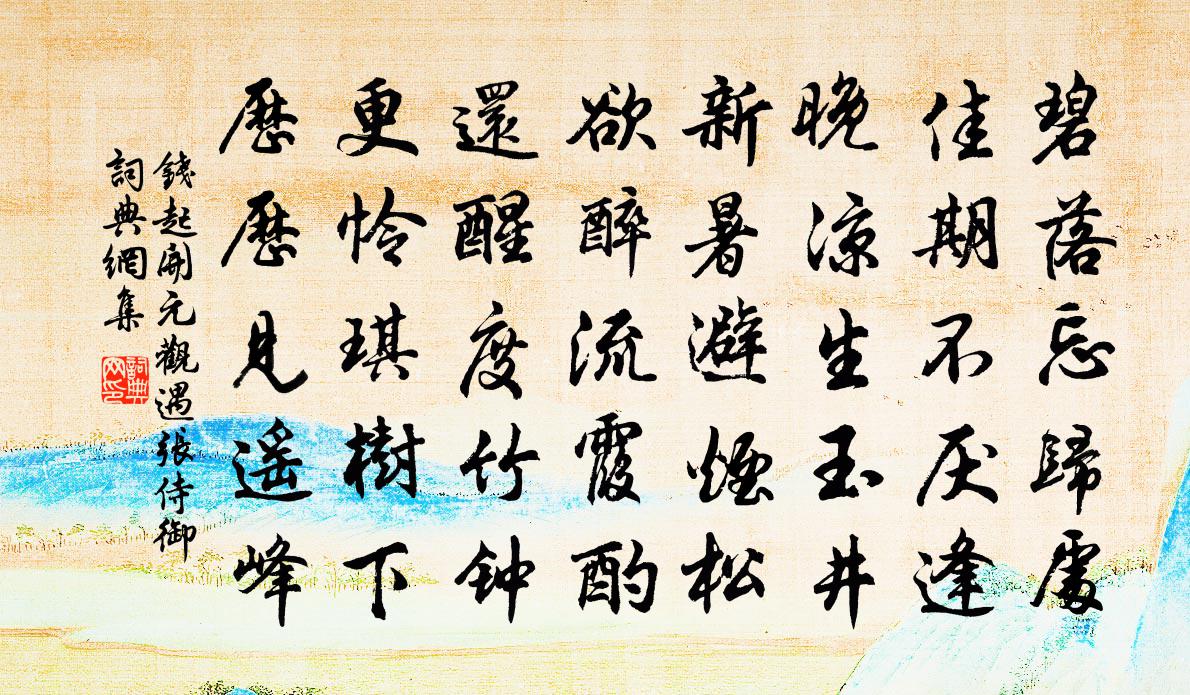 碧落忘歸處
佳期不厌逢
晚涼生玉井
新暑避煙松
欲醉流霞酌
還醒度竹钟
更怜琪樹下
歷歷見遥峰
錢起開元觀遇張侍御
詞典網集
詞典
网印